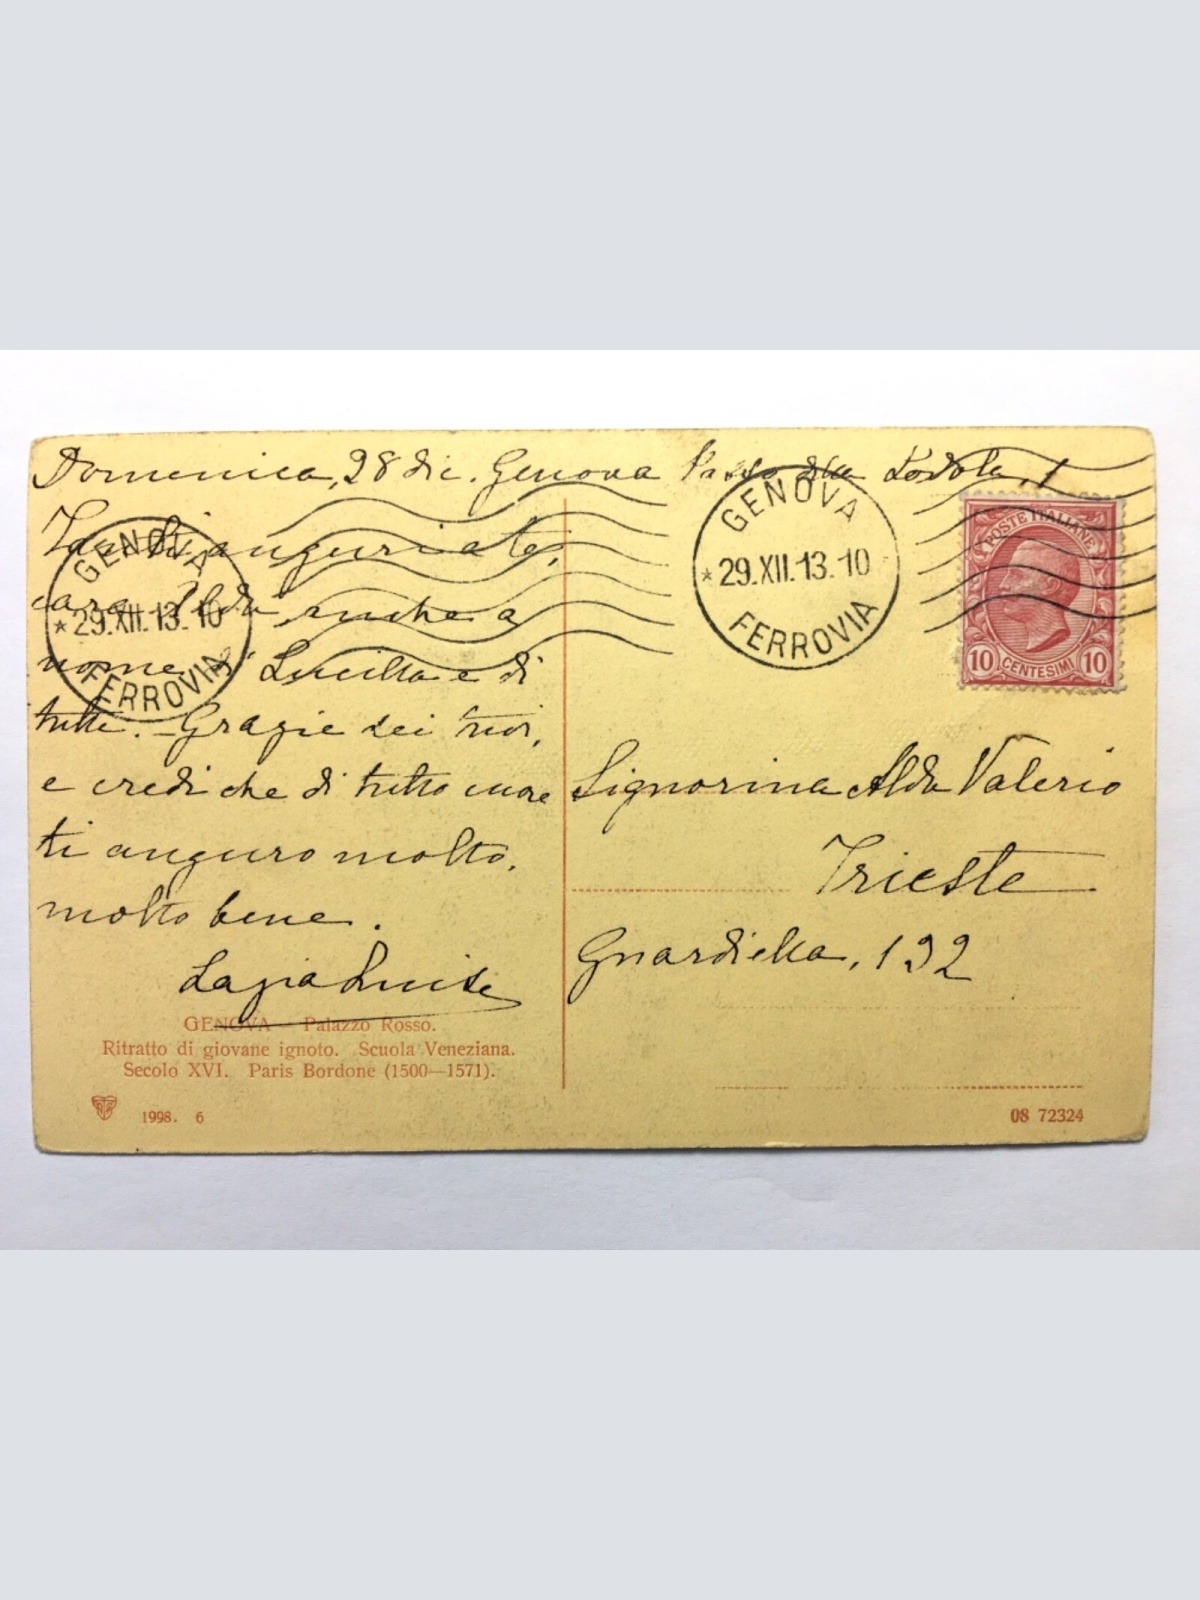 Domenica, 28 dic. Genova Passo della Lodola, 1
Tanti auguri a te,
cara Alda, anche a
nome di Lucilla e di
tutti. - Grazie dei tuoi,
e credi che di tutto cuore
ti auguro molto,
molto bene.
GENOVA
*29.XII.13.10
FERROVIA
GENOVA
*29.XII.13.10
FERROVIA
POSTE ITALIANE
10 CENTESIMI 10
Signorina Alda Valerio
Trieste
Guardiella, 192
GENOVA — Palazzo Rosso.
Ritratto di giovane ignoto. Scuola Veneziana.
Secolo XVI. Paris Bordone (1500—1571).
1998. 6
08 72324